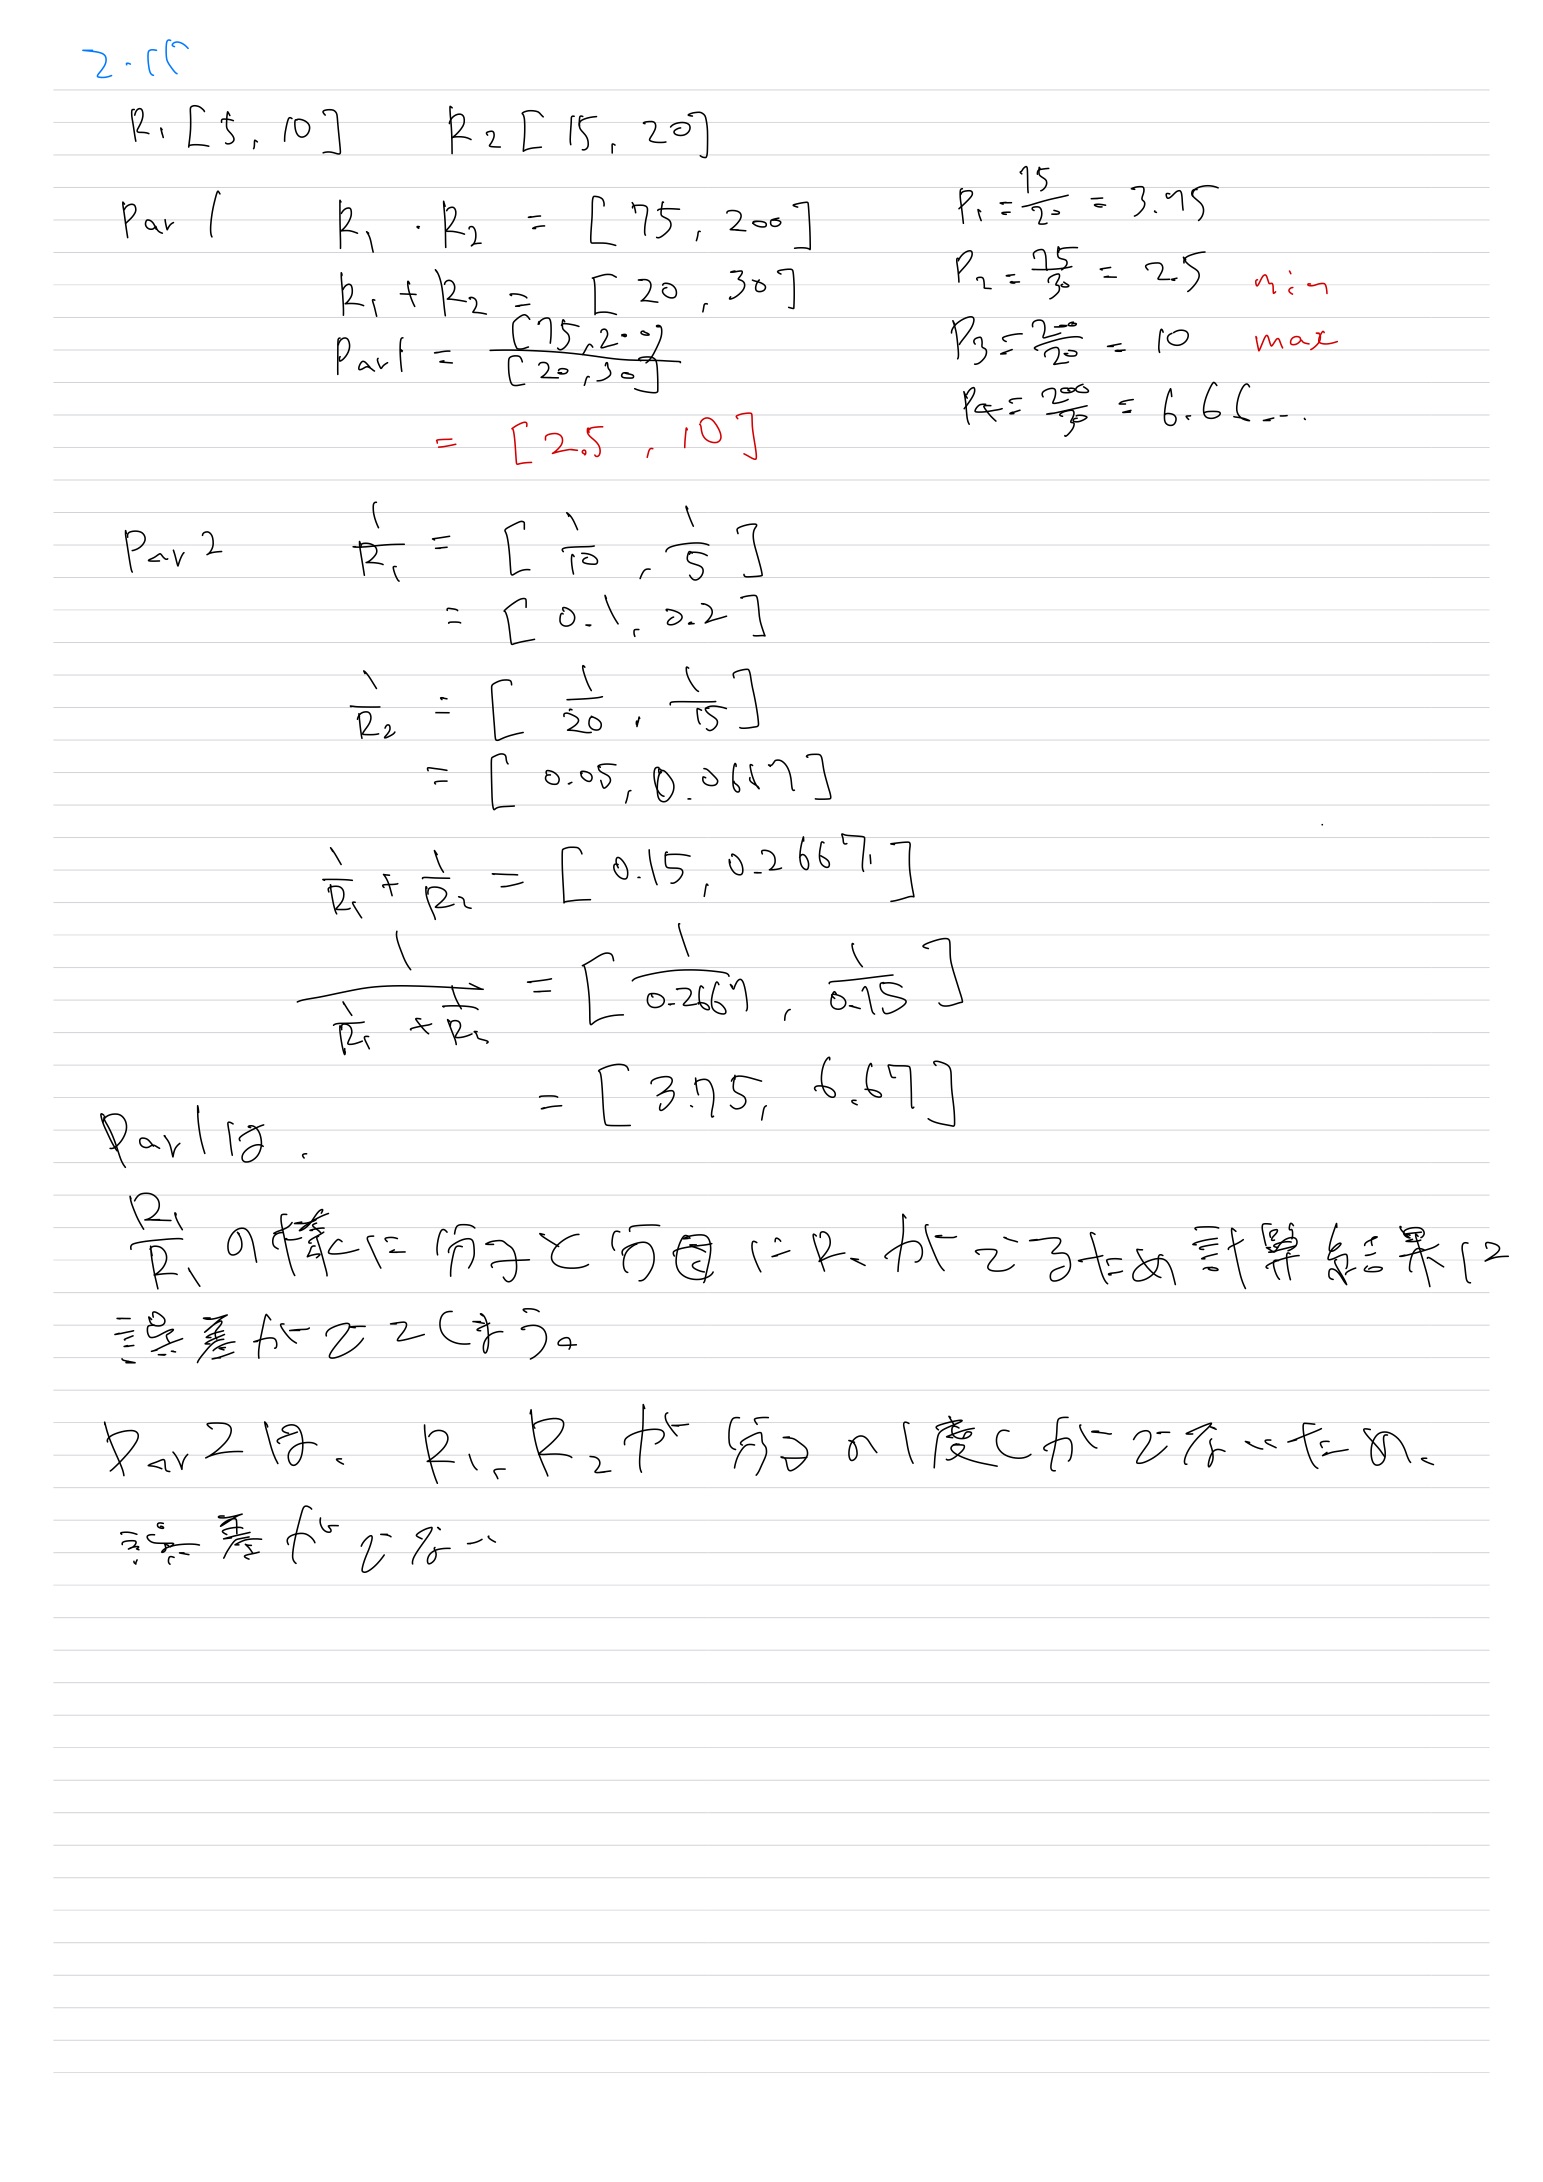 R₁ [5, 10] R₂ [15, 20]
Par1 R₁ · R₂ = [75, 200]
R₁ + R₂ = [20, 30]
Par1 = [75, 200] / [20, 30]
= [2.5, 10]
P₁ = 75/20 = 3.75
P₂ = 75/30 = 2.5 min
P₃ = 200/20 = 10 max
P₄ = 200/30 = 6.66...
Par2 1/R₁ = [1/10, 1/5]
= [0.1, 0.2]
1/R₂ = [1/20, 1/15]
= [0.05, 0.0667]
1/R₁ + 1/R₂ = [0.15, 0.2667]
1/(1/R₁ + 1/R₂) = [1/0.2667, 1/0.15]
= [3.75, 6.67]
Par1は、
R₁/R₁ の様に分子と分母にR₁がでるため計算結果に
誤差がでてしまう。
Par2は、R₁、R₂が分母の1度しかでないため、
誤差がでない